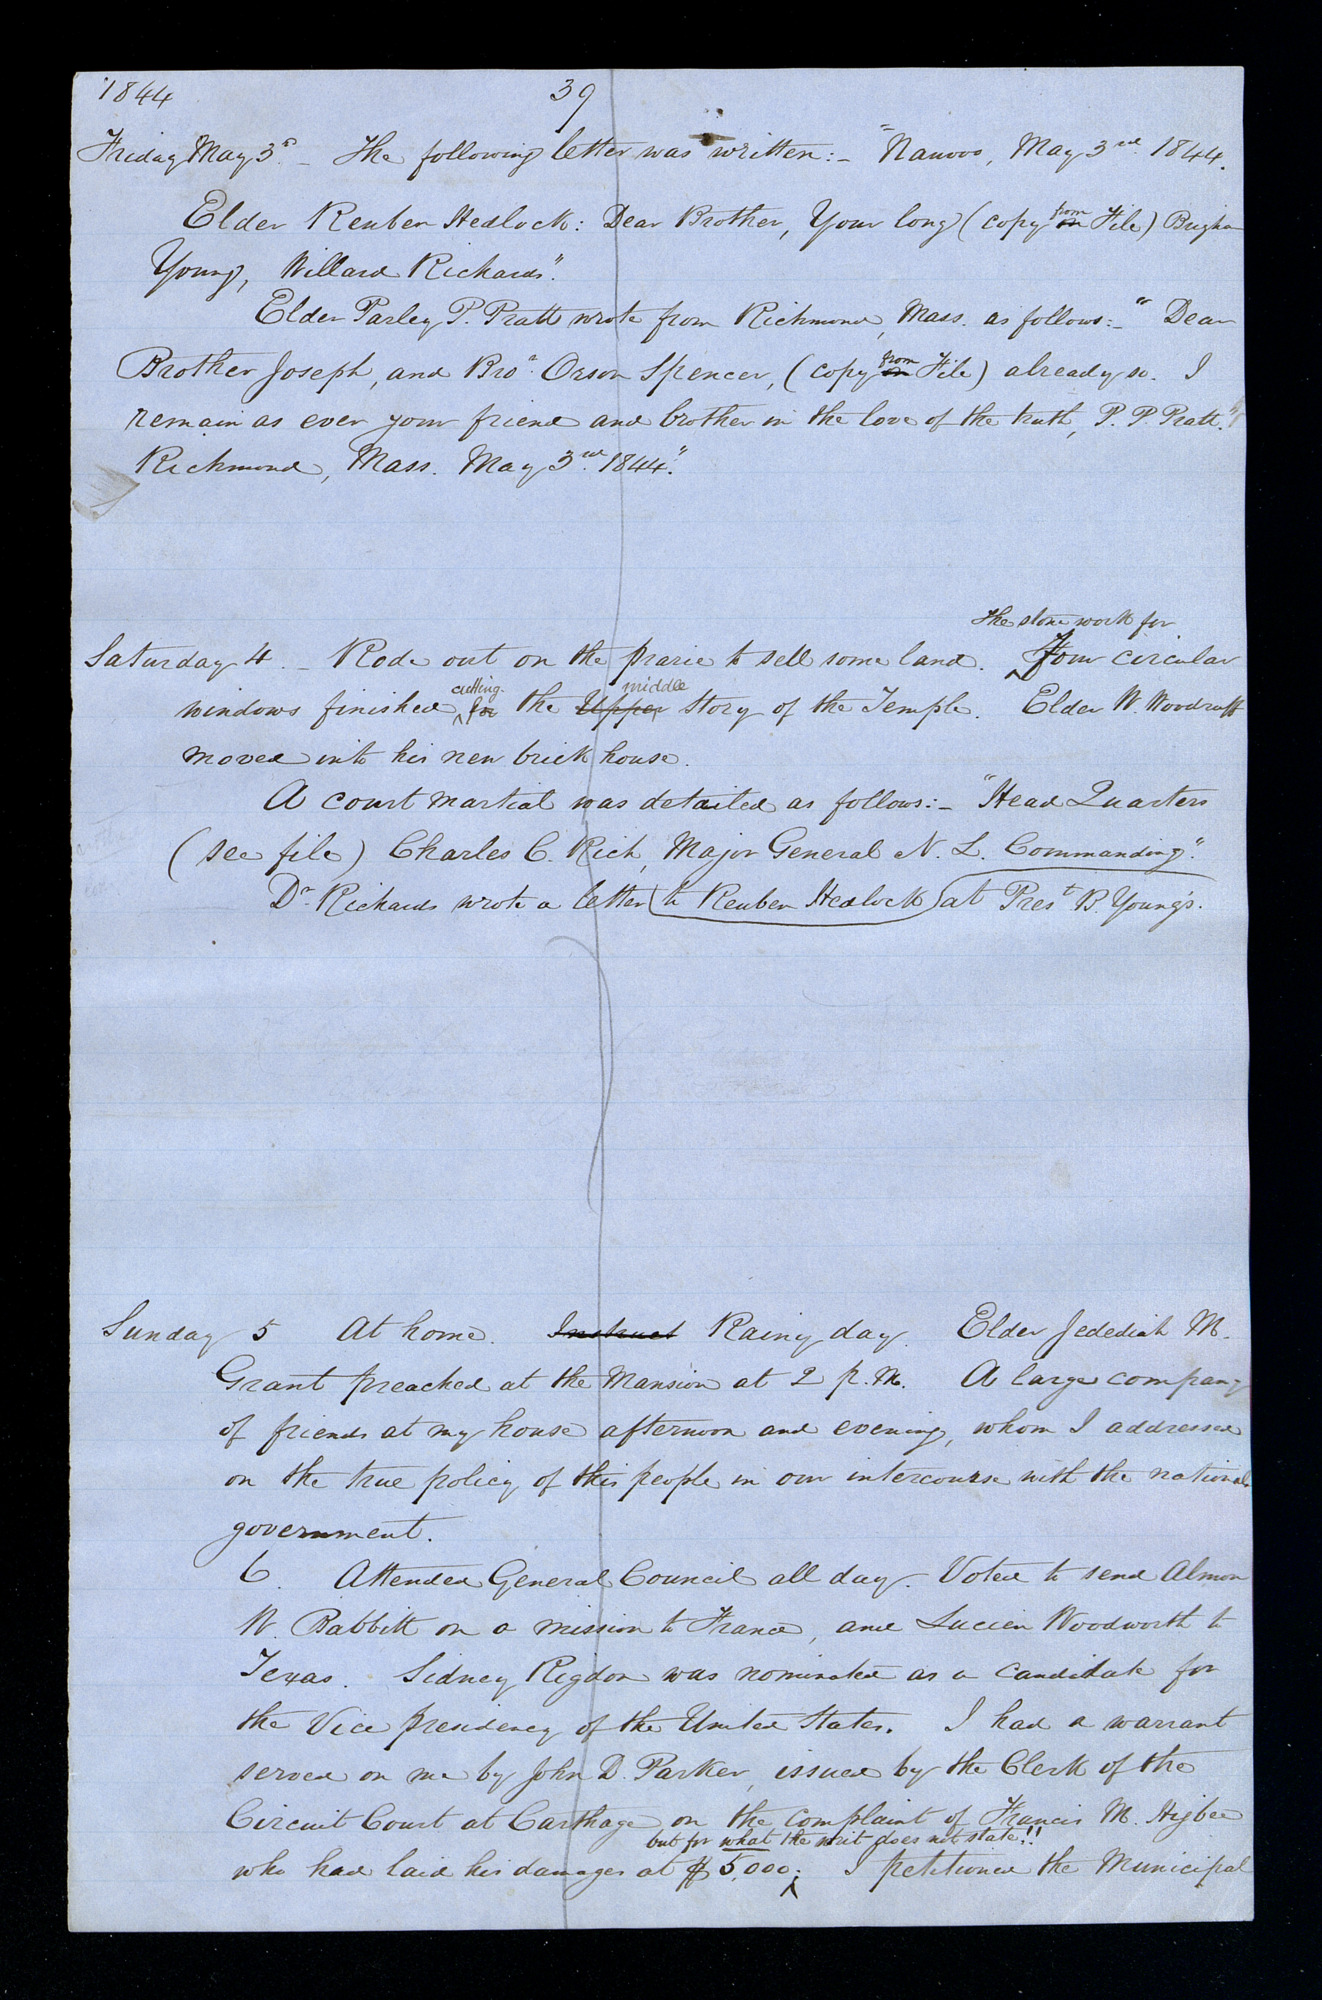 1844
39
Friday May 3d. – The following letter was written:– "Nauvoo, May 3rd. 1844.
Elder Reuben Hedlock: Dear Brother, Your long (copy from on File) Brigham
Young, Willard Richards".
Elder Parley P. Pratt wrote from Richmond, Mass. as follows:– "Dear
Brother Joseph, and Bro. Orson Spencer, (copy from on File) already so. I
remain as ever your friend and brother in the love of the truth, P. P. Pratt."
Richmond, Mass. May 3rd. 1844."
the stone work for
Saturday 4. – Rode out on the prarie to sell some land. Four circular
cutting middle
windows finished for the Upper story of the Temple. Elder W. Woodruff
moved into his new brick house.
A court martial was detailed as follows:– "Head Quarters
(see file) Charles C. Rich, Major General N. L. Commanding".
Dr. Richards wrote a letter to Reuben Hedlock at Prest. B. Young's.
Sunday 5 At home. Instruct Rainy day. Elder Jedediah M.
Grant preached at the Mansion at 2 p.m. A large company
of friends at my house afternoon and evening, whom I addressed
on the true policy of this people in our intercourse with the national
government.
6. Attended General Council all day. Voted to send Almon
W. Babbitt on a mission to France, and Lucien Woodworth to
Texas. Sidney Rigdon was nominated as a candidate for
the Vice presidency of the United States. I had a warrant
served on me by John D. Parker, issued by the Clerk of the
Circuit Court at Carthage on the complaint of Francis M. Higbee
but for what the writ does not state!!
who had laid his damages at $5,000; I petitioned the Municipal